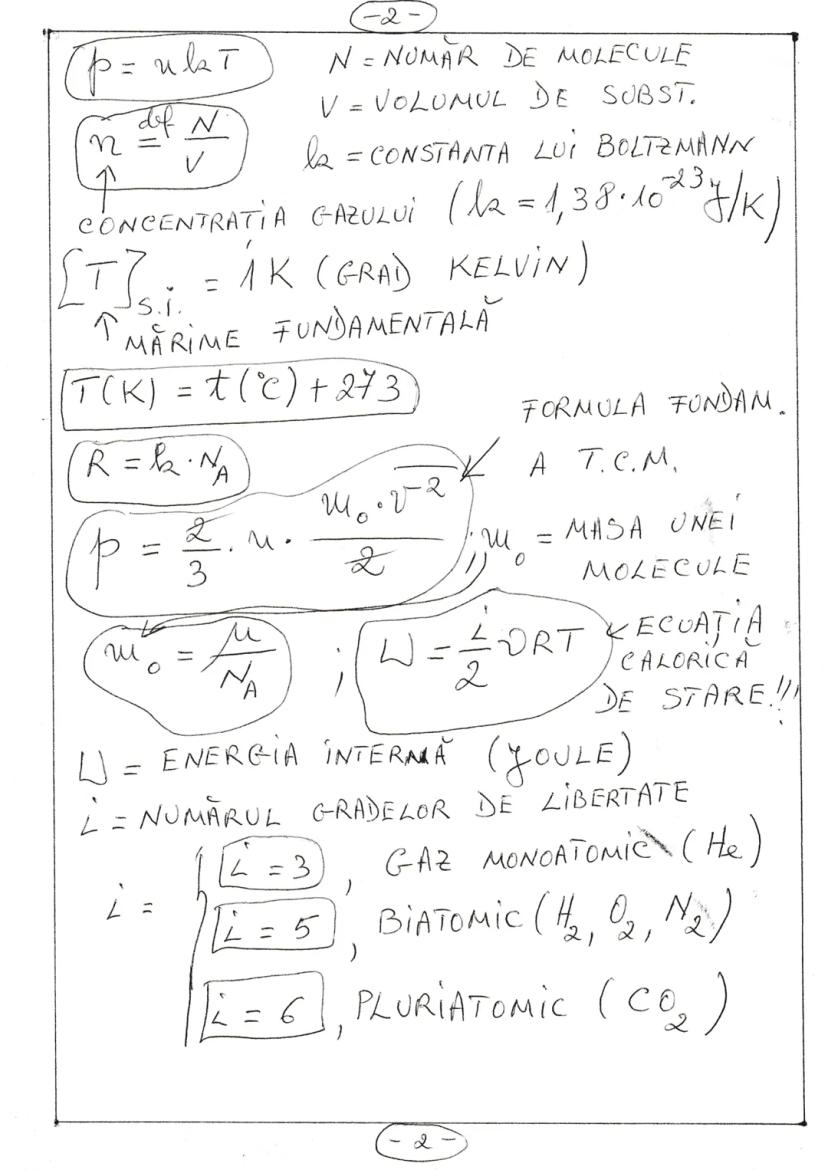 -2-
p = nkT N = NUMĂR DE MOLECULE
V = VOLUMUL DE SUBST.
n def= N/V k = CONSTANTA LUI BOLTZMANN
CONCENTRAȚIA GAZULUI (k = 1,38·10⁻²³ J/K)
[T]S.I. = 1K (GRAD KELVIN)
↑ MĂRIME FUNDAMENTALĂ
T(K) = t(°C) + 273
FORMULA FUNDAM.
R = k·N_A A T.C.M.
p = 2/3 · n · m₀·v̄²/2 ; m₀ = MASA UNEI
MOLECULE
m₀ = μ/N_A ; U = i/2 νRT ← ECUAȚIA
CALORICĂ
DE STARE!!!
U = ENERGIA INTERNĂ (JOULE)
i = NUMĂRUL GRADELOR DE LIBERTATE
i = { i = 3, GAZ MONOATOMIC (He)
i = 5, BIATOMIC (H₂, O₂, N₂)
i = 6, PLURIATOMIC (CO₂)
-2-